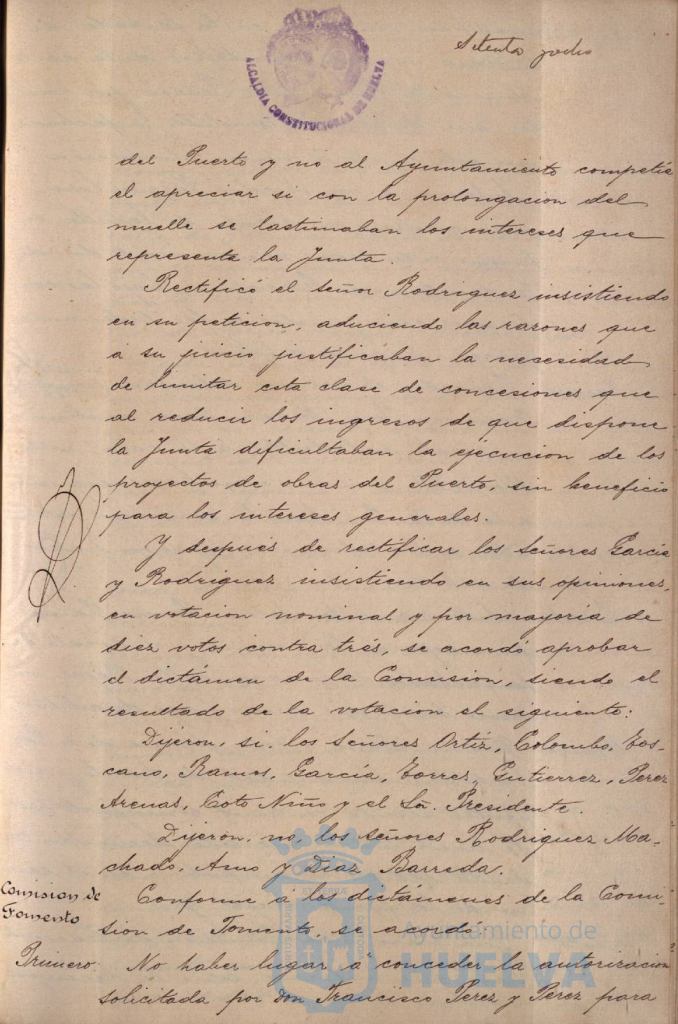 Setenta y ocho
ALCALDIA CONSTITUCIONAL DE HUELVA
del Puerto y no al Ayuntamiento competía
el apreciar si con la prolongacion del
muelle se lastimaban los intereses que
representa la Junta.
Rectificó el Señor Rodriguez insistiendo
en su peticion, aduciendo las razones que
á su juicio justificaban la necesidad
de limitar esta clase de concesiones que
al reducir los ingresos de que dispone
la Junta dificultaban la ejecucion de los
proyectos de obras del Puerto, sin beneficio
para los intereses generales.
Y después de rectificar los Señores García
y Rodriguez insistiendo en sus opiniones,
en votacion nominal y por mayoria de
diez votos contra trés, se acordó aprobar
el dictámen de la Comision, siendo el
resultado de la votacion el siguiente:
Dijeron, si, los Señores Ortiz, Colombo, Tos-
cano, Ramos, García, Torres, Gutierrez, Perez
Arenas, Coto Niño y el Sr. Presidente.
Dijeron, no, los señores Rodriguez Ma-
chado, Amo y Diaz Barreda.
Comision de
Fomento
Conforme á los dictámenes de la Comi-
sion de Fomento, se acordó:
Primero.
No haber lugar á conceder la autorizacion
solicitada por Don Francisco Perez y Perez para
Ayuntamiento de
HUELVA